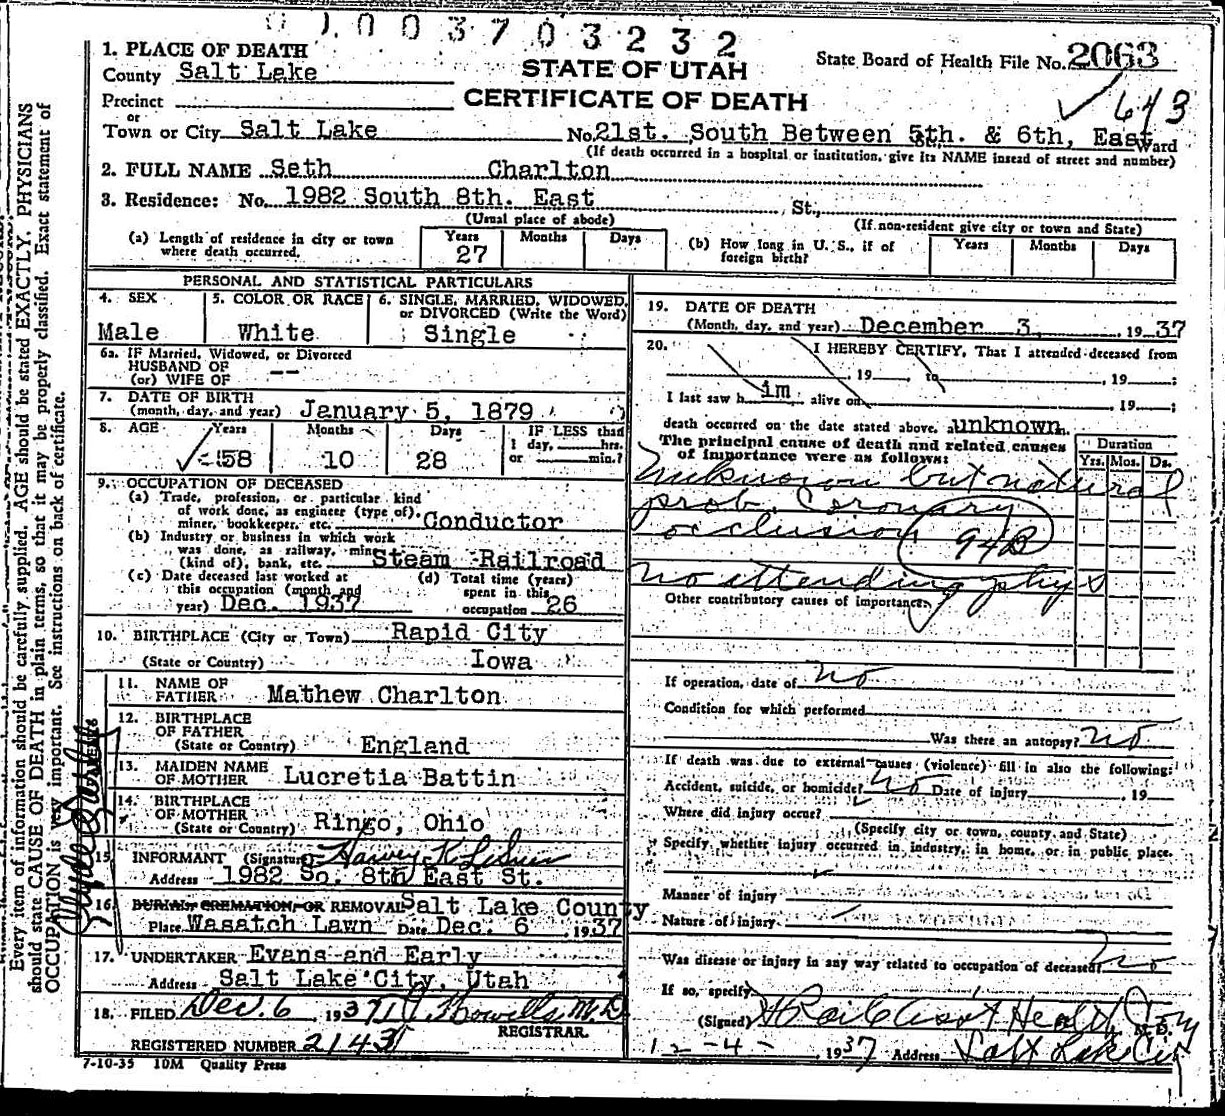 0100370 3232
1. PLACE OF DEATH
County Salt Lake
STATE OF UTAH
State Board of Health File No. 2063
Precinct
CERTIFICATE OF DEATH
643
or
Town or City Salt Lake No. 21st. South Between 5th. & 6th, East Ward
(If death occurred in a hospital or institution, give its NAME insead of street and number)
2. FULL NAME Seth Charlton
3. Residence: No. 1982 South 8th. East St.,
(Usual place of abode) (If non-resident give city or town and State)
(a) Length of residence in city or town where death occurred. Years 27 Months Days
(b) How long in U. S., if of foreign birth? Years Months Days
PERSONAL AND STATISTICAL PARTICULARS
4. SEX Male
5. COLOR OR RACE White
6. SINGLE, MARRIED, WIDOWED, or DIVORCED (Write the Word) Single
6a. IF Married, Widowed, or Divorced
HUSBAND OF
(or) WIFE OF --
7. DATE OF BIRTH
(month, day, and year) January 5, 1879
8. AGE Years 58 Months 10 Days 28 IF LESS than 1 day, hrs. or min.?
9. OCCUPATION OF DECEASED
(a) Trade, profession, or particular kind
of work done, as engineer (type of),
miner, bookkeeper, etc. Conductor
(b) Industry or business in which work
was done, as railway, mine
(kind of), bank, etc. Steam Railroad
(c) Date deceased last worked at
this occupation (month and
year) Dec. 1937
(d) Total time (years)
spent in this
occupation 26
10. BIRTHPLACE (City or Town) Rapid City
(State or Country) Iowa
11. NAME OF
FATHER Mathew Charlton
12. BIRTHPLACE
OF FATHER
(State or Country) England
13. MAIDEN NAME
OF MOTHER Lucretia Battin
14. BIRTHPLACE
OF MOTHER
(State or Country) Ringo, Ohio
15 INFORMANT (Signature) Harvey K.
Address 1982 So. 8th East St.
16. BURIAL, CREMATION, OR REMOVAL Salt Lake County
Place Wasatch Lawn Date Dec. 6 , 1937
17. UNDERTAKER Evans and Early
Address Salt Lake City, Utah
18. FILED Dec. 6 , 1937 T J Howells, M.D.
REGISTRAR.
REGISTERED NUMBER 2143
7-10-35 10M Quality Press
19. DATE OF DEATH
(Month, day, and year) December 3, 1937
20. I HEREBY CERTIFY, That I attended deceased from
, 19 to , 19 ;
I last saw him alive on , 19 ;
death occurred on the date stated above, a unknown m.
The principal cause of death and related causes
of importance were as follows:
Duration
Yrs. Mos. Ds.
Unknown but natural
prob. Coronary
occlusion 94B
No attending phys
Other contributory causes of importance:
If operation, date of No
Condition for which performed
Was there an autopsy? no
If death was due to external causes (violence) fill in also the following:
Accident, suicide, or homicide? No Date of injury , 19
Where did injury occur?
(Specify city or town, county and State)
Specify whether injury occurred in industry, in home, or in public place.
Manner of injury
Nature of injury
Was disease or injury in any way related to occupation of deceased? No
If so, specify
(Signed) Asst Health Com M. D.
12-4- , 1937 Address Salt Lake City
Every item of information should be carefully supplied. AGE should be stated EXACTLY. PHYSICIANS
should state CAUSE OF DEATH in plain terms, so that it may be properly classified. Exact statement of
OCCUPATION is very important. See instructions on back of certificate.
PARENTS